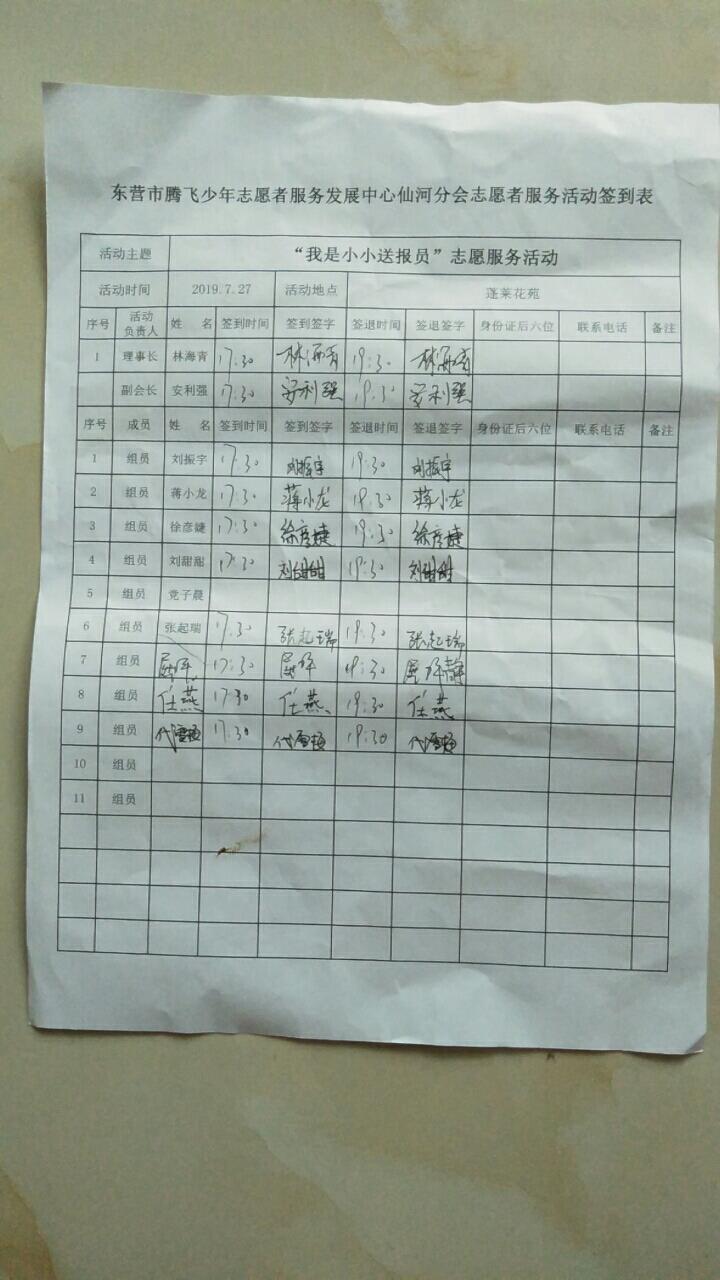 东营市腾飞少年志愿者服务发展中心仙河分会志愿者服务活动签到表
活动主题 “我是小小送报员”志愿服务活动
活动时间 2019.7.27 活动地点 蓬莱花苑
序号 活动负责人 姓 名 签到时间 签到签字 签退时间 签退签字 身份证后六位 联系电话 备注
1 理事长 林海青 17:30 林海青 19:30 林海青
副会长 安利强 17:30 安利强 19:30 安利强
序号 成员 姓 名 签到时间 签到签字 签退时间 签退签字 身份证后六位 联系电话 备注
1 组员 刘振宇 17:30 刘振宇 19:30 刘振宇
2 组员 蒋小龙 17:30 蒋小龙 19:30 蒋小龙
3 组员 徐彦婕 17:30 徐彦婕 19:30 徐彦婕
4 组员 刘甜甜 17:30 刘甜甜 19:30 刘甜甜
5 组员 党子晨
6 组员 张起瑞 17:30 张起瑞 19:30 张起瑞
7 组员 17:30 19:30
8 组员 任燕 17:30 任燕 19:30 任燕
9 组员 17:30 19:30
10 组员
11 组员